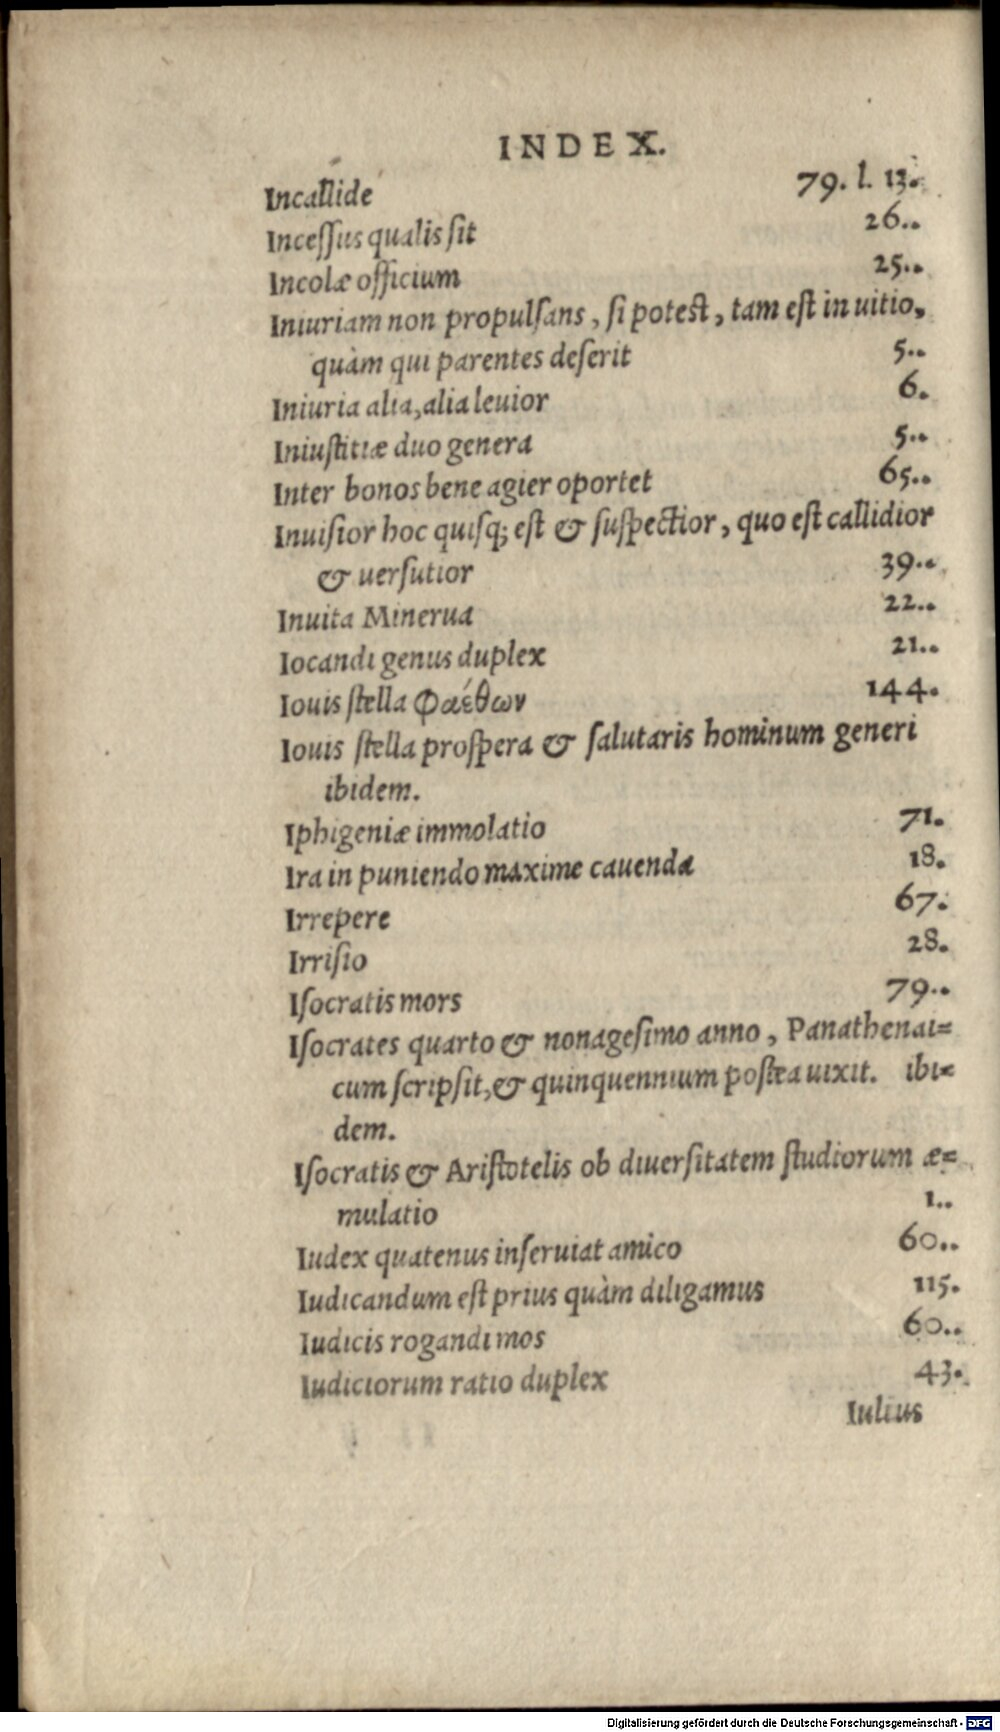 INDEX.
Incallide 79. l. 13.
Incessus qualis sit 26..
Incolæ officium 25..
Iniuriam non propulsans, si potest, tam est in uitio,
quàm qui parentes deserit 5..
Iniuria alia, alia leuior 6.
Iniustitiæ duo genera 5..
Inter bonos bene agier oportet 65..
Inuisior hoc quisq; est & suspectior, quo est callidior
& uersutior 39..
Inuita Minerua 22..
Iocandi genus duplex 21..
Iouis stella Φαέθων 144.
Iouis stella prospera & salutaris hominum generi
ibidem.
Iphigeniæ immolatio 71.
Ira in puniendo maxime cauenda 18.
Irrepere 67.
Irrisio 28.
Isocratis mors 79..
Isocrates quarto & nonagesimo anno, Panathenai=
cum scripsit, & quinquennium postea uixit. ibi=
dem.
Isocratis & Aristotelis ob diuersitatem studiorum æ=
mulatio 1..
Iudex quatenus inseruiat amico 60..
Iudicandum est prius quàm diligamus 115.
Iudicis rogandi mos 60..
Iudiciorum ratio duplex 43.
Iulius
Digitalisierung gefördert durch die Deutsche Forschungsgemeinschaft - DFG